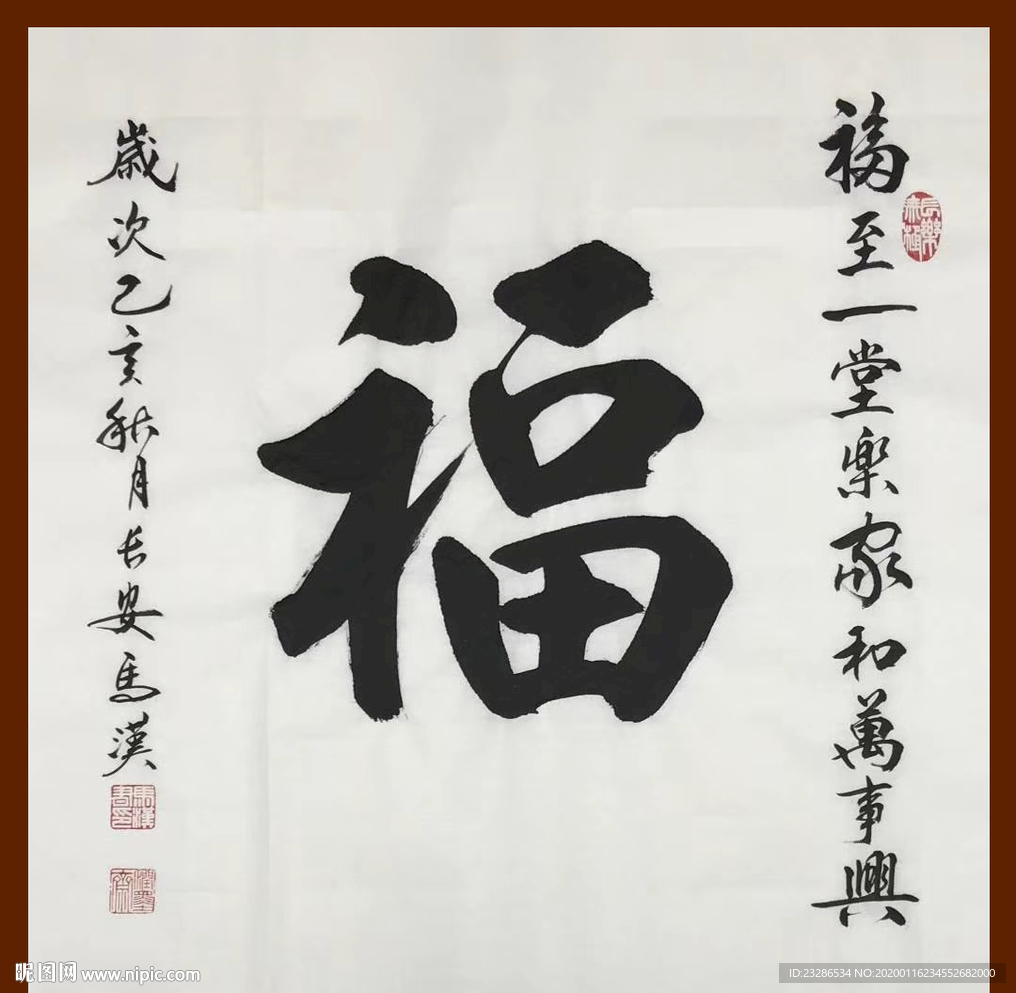 福至一堂樂家和萬事興
福
歲次乙亥秋月长安馬漢
昵图网 www.nipic.com
ID:23286534 NO:20200116234552682000